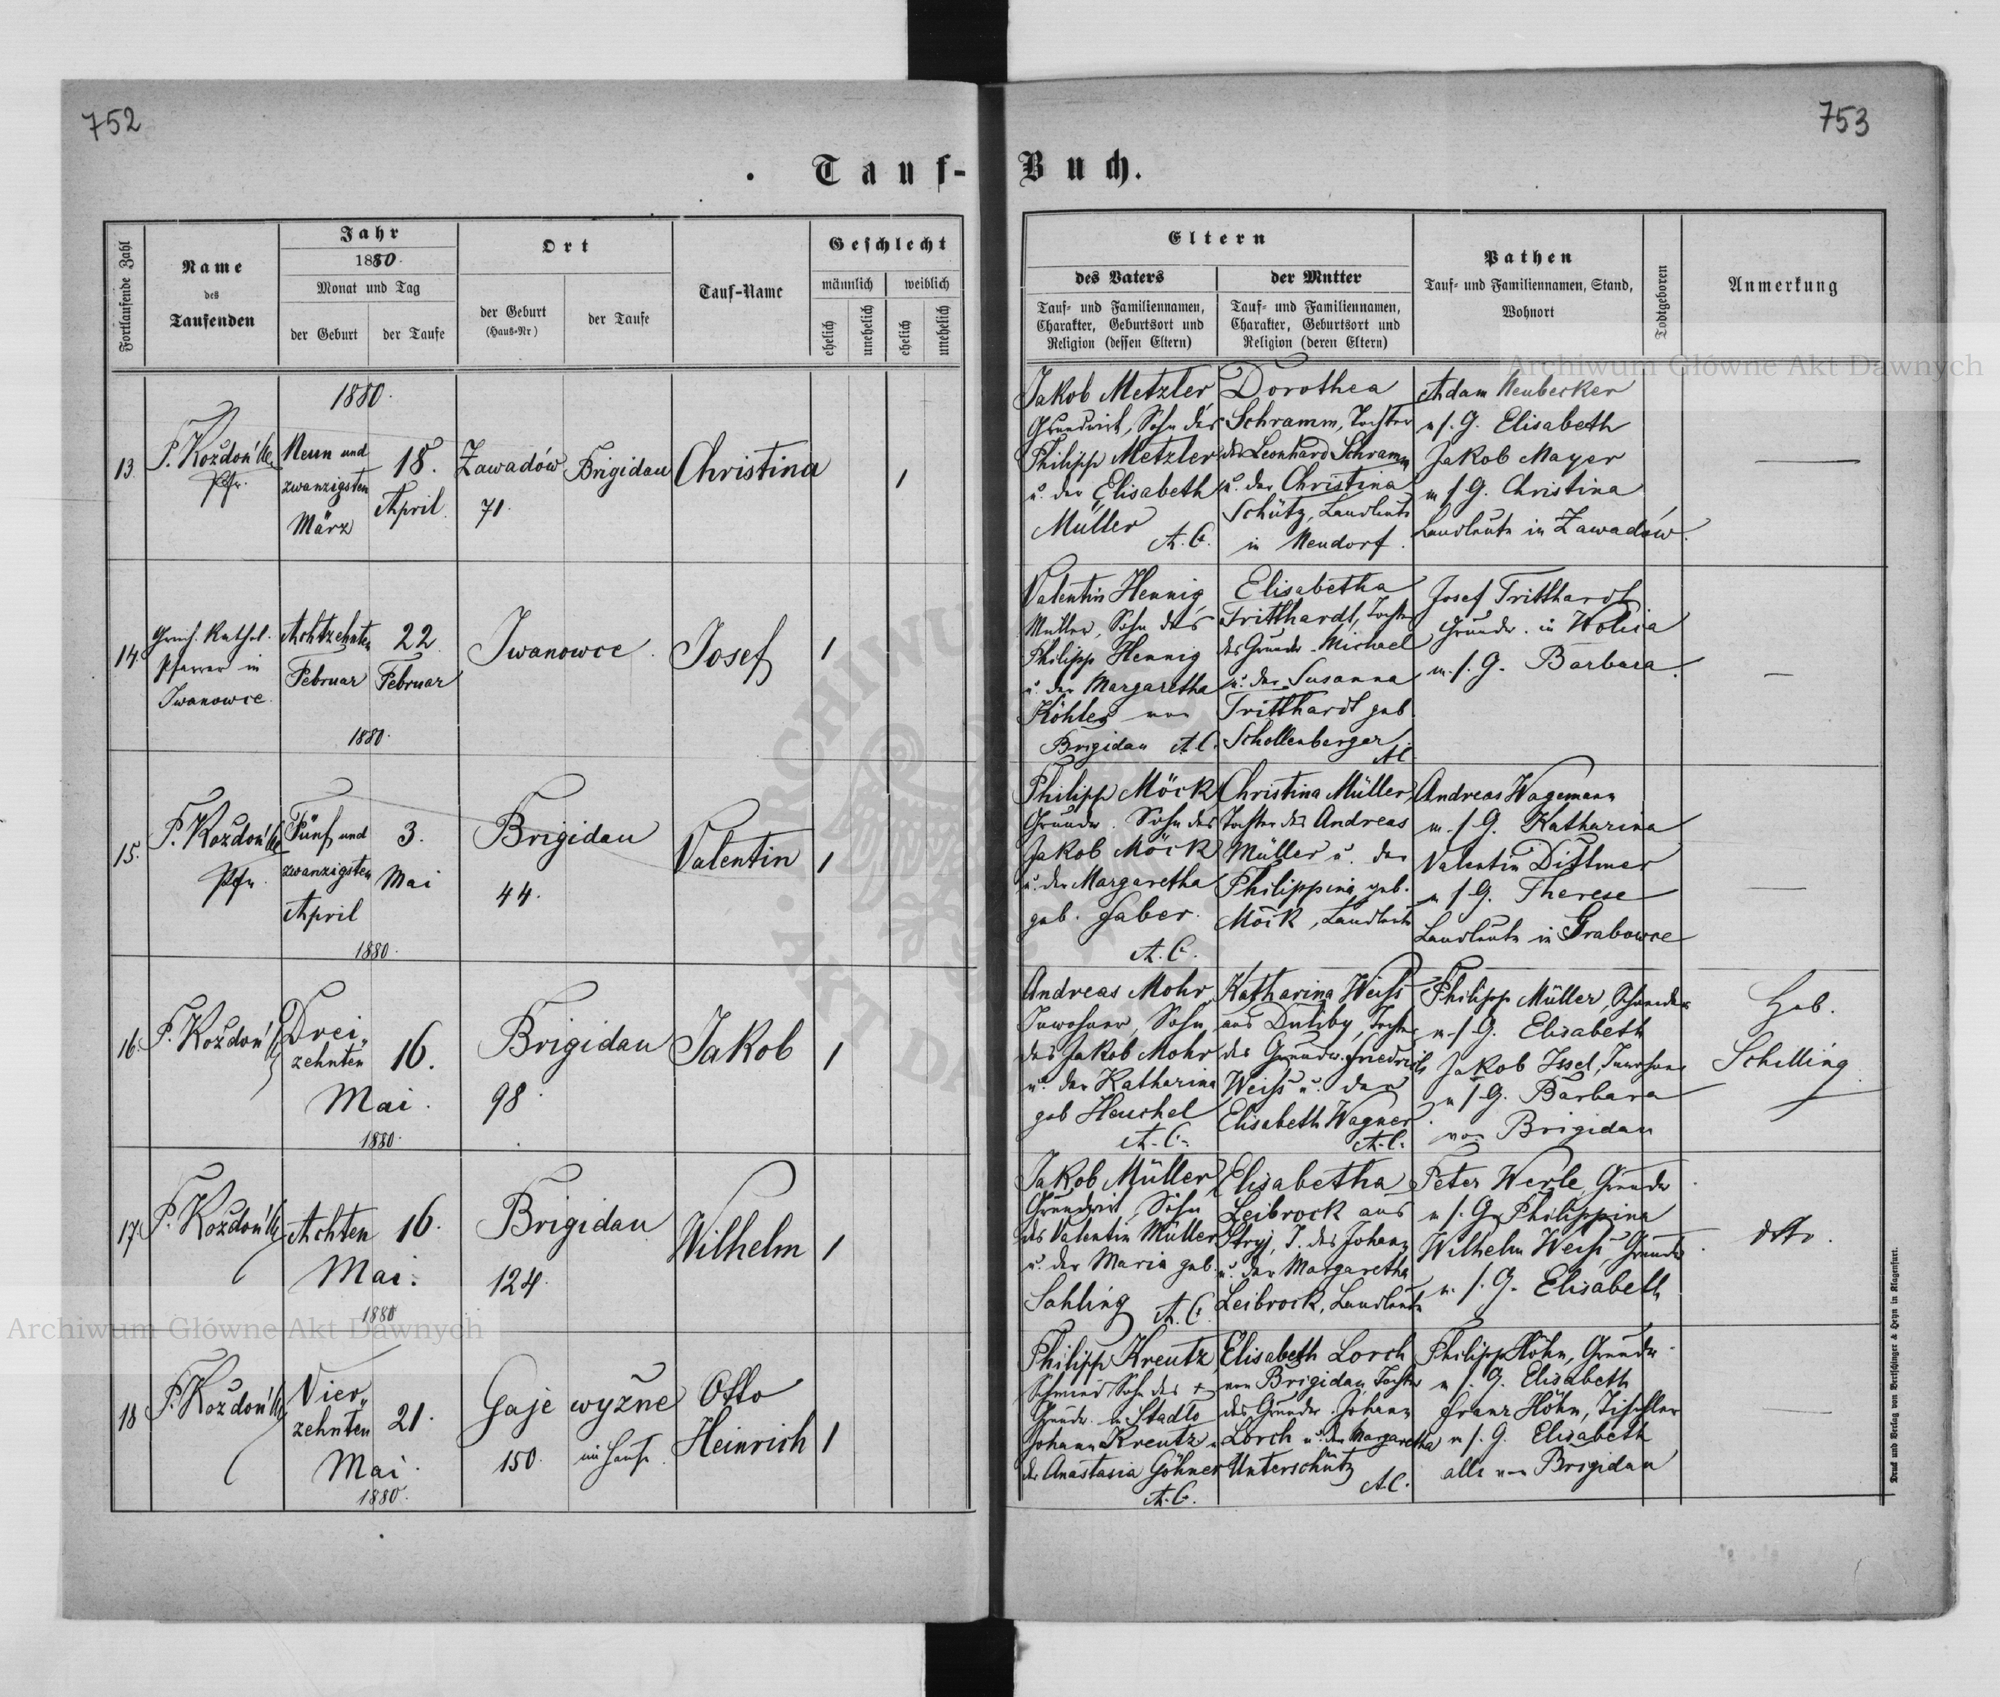 752
753
Tauf-Buch.
Fortlaufende Zahl
Name
des
Taufenden
Jahr
1880.
Monat und Tag
der Geburt
der Taufe
Ort
der Geburt
(Haus-Nr)
der Taufe
Tauf-Name
Geschlecht
männlich
weiblich
ehelich
unehelich
ehelich
unehelich
Eltern
des Vaters
Tauf- und Familiennamen,
Charakter, Geburtsort und
Religion (dessen Eltern)
der Mutter
Tauf- und Familiennamen,
Charakter, Geburtsort und
Religion (deren Eltern)
Pathen
Tauf- und Familiennamen, Stand,
Wohnort
Todtgeboren
Anmerkung
13.
Pfr.
1880.
Neun und
zwanzigsten
März
18.
April
Zawadów
71.
Brigidau
Christina
1
Jakob Metzler
Grundwirt, Sohn des
Philipp Metzler
u. der Elisabeth
Müller
A. C.
Dorothea
Schramm, Tochter
des Leonhard Schramm
u. der Christina
Schütz, Landleute
in Neudorf.
Adam Neubecker
u s. G. Elisabeth
Jakob Mayer
u s G. Christina
Landleute in Zawadów.
14.
Griech. Kathol.
Pfarrer in
Iwanowce
Achtzehnten
Februar
22.
Februar
1880.
Iwanowce.
Josef
1
Valentin Hennig
Müller, Sohn des
Philipp Hennig
u. der Margaretha
Köhler von
Brigidau A.C.
Elisabetha
Tritthardt, Tochter
des Grundw. Michael
u. der Susanna
Tritthardt geb
Schollenberger.
A.C.
Josef Tritthardt
Grundw. in Wolica
u. s. G. Barbara.
15.
Pfr.
Fünf und
zwanzigsten
April
3.
Mai
1880.
Brigidau
44.
Valentin
1
Philipp Möck
Grundw. Sohn des
Jakob Möck
u. der Margaretha
geb. Faber.
A. C.
Christina Müller,
Tochter des Andreas
Müller u. der
Philippina geb.
Möck, Landleute
Andreas Wagemann
u. s G. Katharina
Valentin Dittmar
u s G. Therese
Landleute in Grabowce
16.
Drei-
zehnten
Mai.
16.
1880.
Brigidau
98.
Jakob
1
Andreas Mohr
Inwohner, Sohn
des Jakob Mohr
u. der Katharina
geb Heuchel
A. C.
Katharina Weiss
aus Duliby, Tochter
des Grundw. Friedrich
Weiss u. der
Elisabeth Wagner.
A. C.
Philipp Müller, Schneider
u s G. Elisabeth
Jakob Issel, Inwohner
u s G. Barbara
von Brigidau
Heb.
Schilling.
17.
Achten
Mai.
16.
1880
Brigidau
124.
Wilhelm
1
Jakob Müller
Grundwirt, Sohn
des Valentin Müller
u. der Maria geb.
Sahling A. C.
Elisabetha
Leibrock aus
Stryj, T. des Johann
u. der Margaretha
Leibrock, Landleute
Peter Werle, Grundw.
u s. G. Philippina
Wilhelm Weiss Grundw.
u. s. G. Elisabeth
dtto.
18
Vier-
zehnten
Mai.
21.
1880.
Gaje wyżne
150.
im Hause.
Otto
Heinrich
1
Philipp Kreutz,
Schmied Sohn des +
Grundw. in Stadlo
Johann Kreutz u
der Anastasia Göhner
A. C.
Elisabeth Lorch
von Brigidau, Tochter
des Grundw. Johann
Lorch u. der Margaretha
Unterschütz
A.C.
Philipp Höhn, Grundw.
u s. G. Elisabeth
Franz Höhn, Tischler
u s. G. Elisabeth
alle von Brigidau
Druck und Verlag von Bertschinger & Heyn in Klagenfurt.
Archiwum Główne Akt Dawnych
Archiwum Główne Akt Dawnych